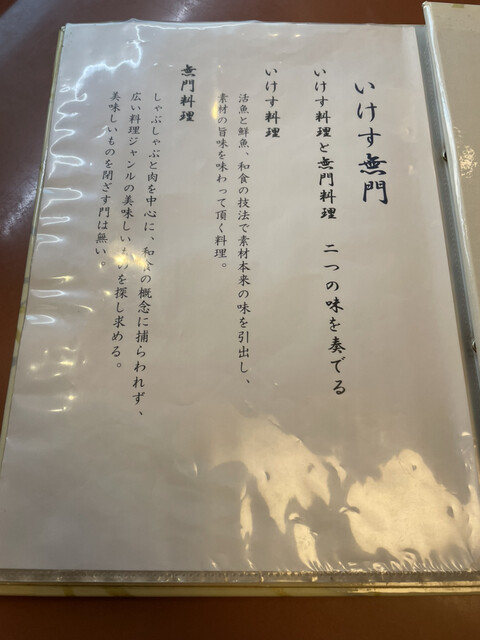 いけす無門
いけす料理と無門料理　二つの味を奏でる
いけす料理
活魚と鮮魚、和食の技法で素材本来の味を引出し、
素材の旨味を味わって頂く料理。
無門料理
しゃぶしゃぶと肉を中心に、和食の概念に捕らわれず、
広い料理ジャンルの美味しいものを探し求める。
美味しいものを閉ざす門は無い。